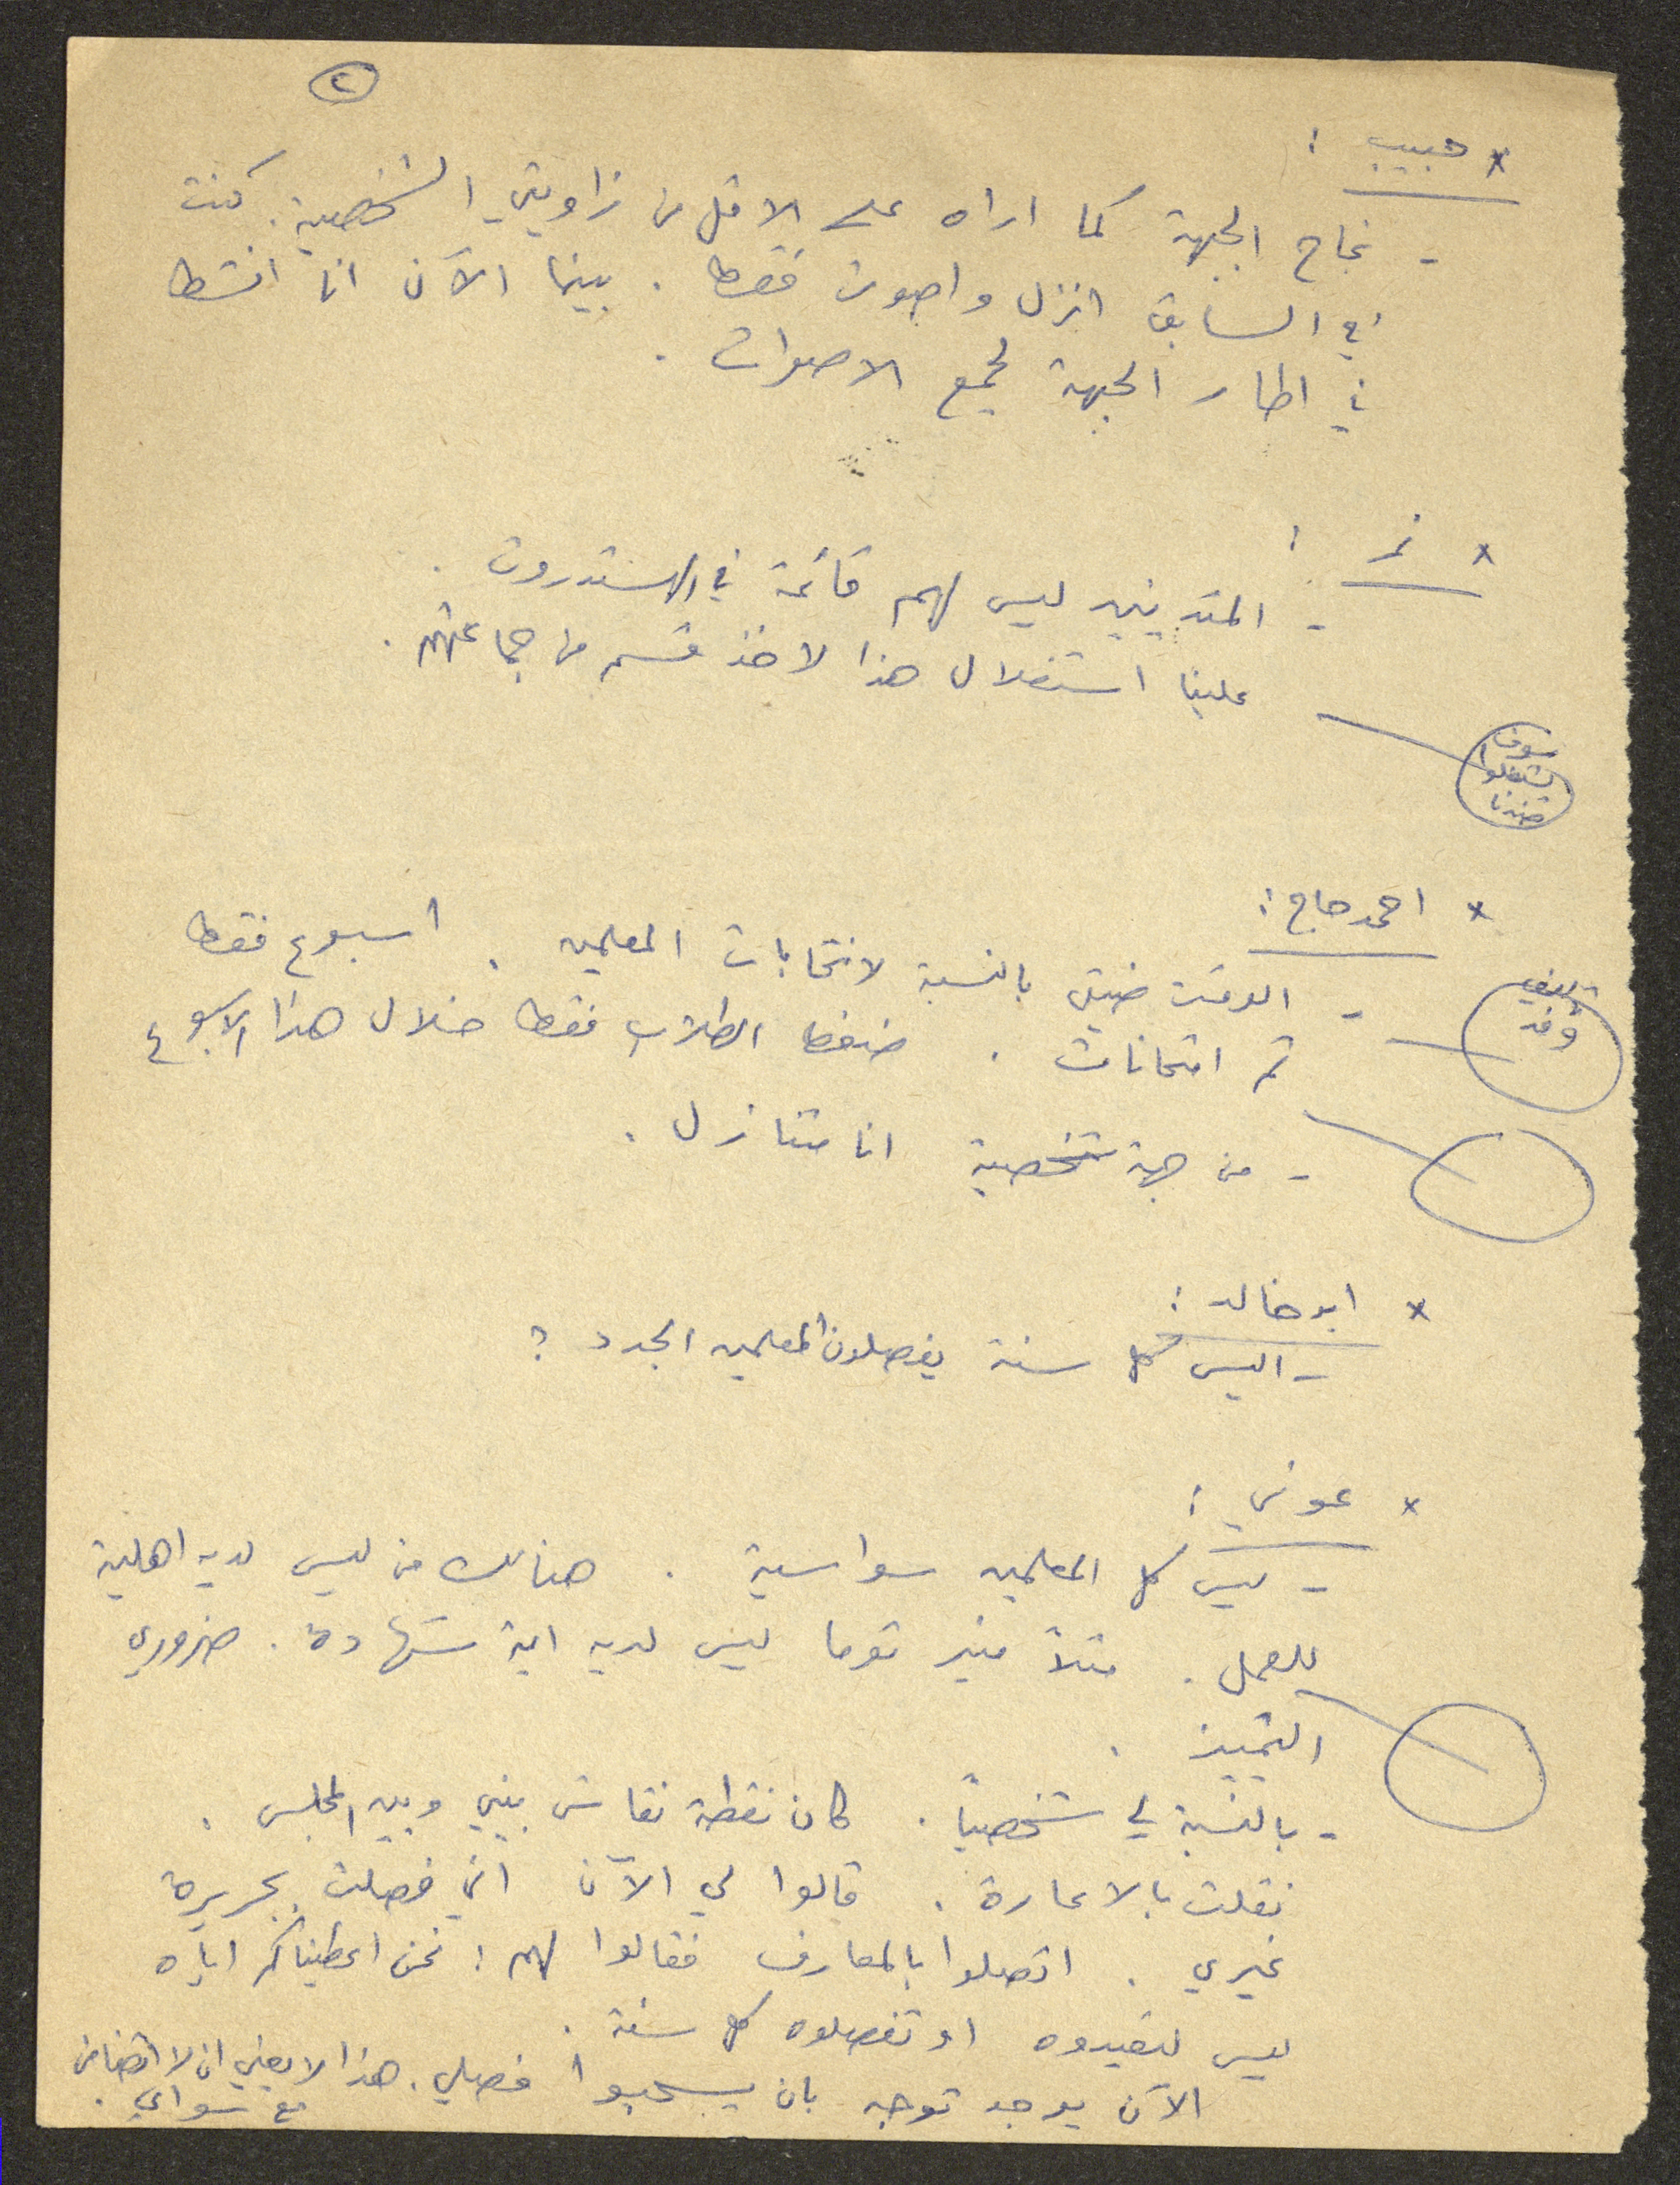 ٢
* حبيب :
- نجاح الجبهة كما اراه على الاقل من زاويتي الشخصية. كنت
في السابق انزل واصوت فقط . بينما الآن انا انشط
في اطار الجبهة لجمع الاصوات .
* نمر :
- المتدينين ليس لهم قائمة في الهستدروت .
علينا استغلال هذا لاخذ قسم من جماعتهم .
سوف
يشتغلوا
ضدنا
* احمد حاج :
- الوقت ضيق بالنسبة لانتخابات المعلمين . اسبوع فقط
وفد
ثم امتحانات . ضغط الطلاب فقط خلال هذا الاسبوع
- من جهة شخصية انا متنازل .
* ابو خالد :
- اليس كل سنة يفصلون المعلمين الجدد ؟
* عوني :
- ليس كل المعلمين سواسية . هنالك من ليس لديه اهلية
للعمل . مثلاً منير توما ليس لديه اية شهادة . ضروري
التمييز .
- بالنسبة لي شخصياً . كان نقطة نقاش بيني وبين المجلس .
نقلت بالاعارة . قالوا لي الآن اني فصلت بجريرة
غيري . اتصلوا بالمعارف فقالوا لهم : نحن اعطيناكم اياه
ليس لتعيدوه او تفصلوه كل سنة .
الآن يوجد توجه بان يسحبوا فصلي . هذا لا يعني ان لا اتضامن
مع سواي .